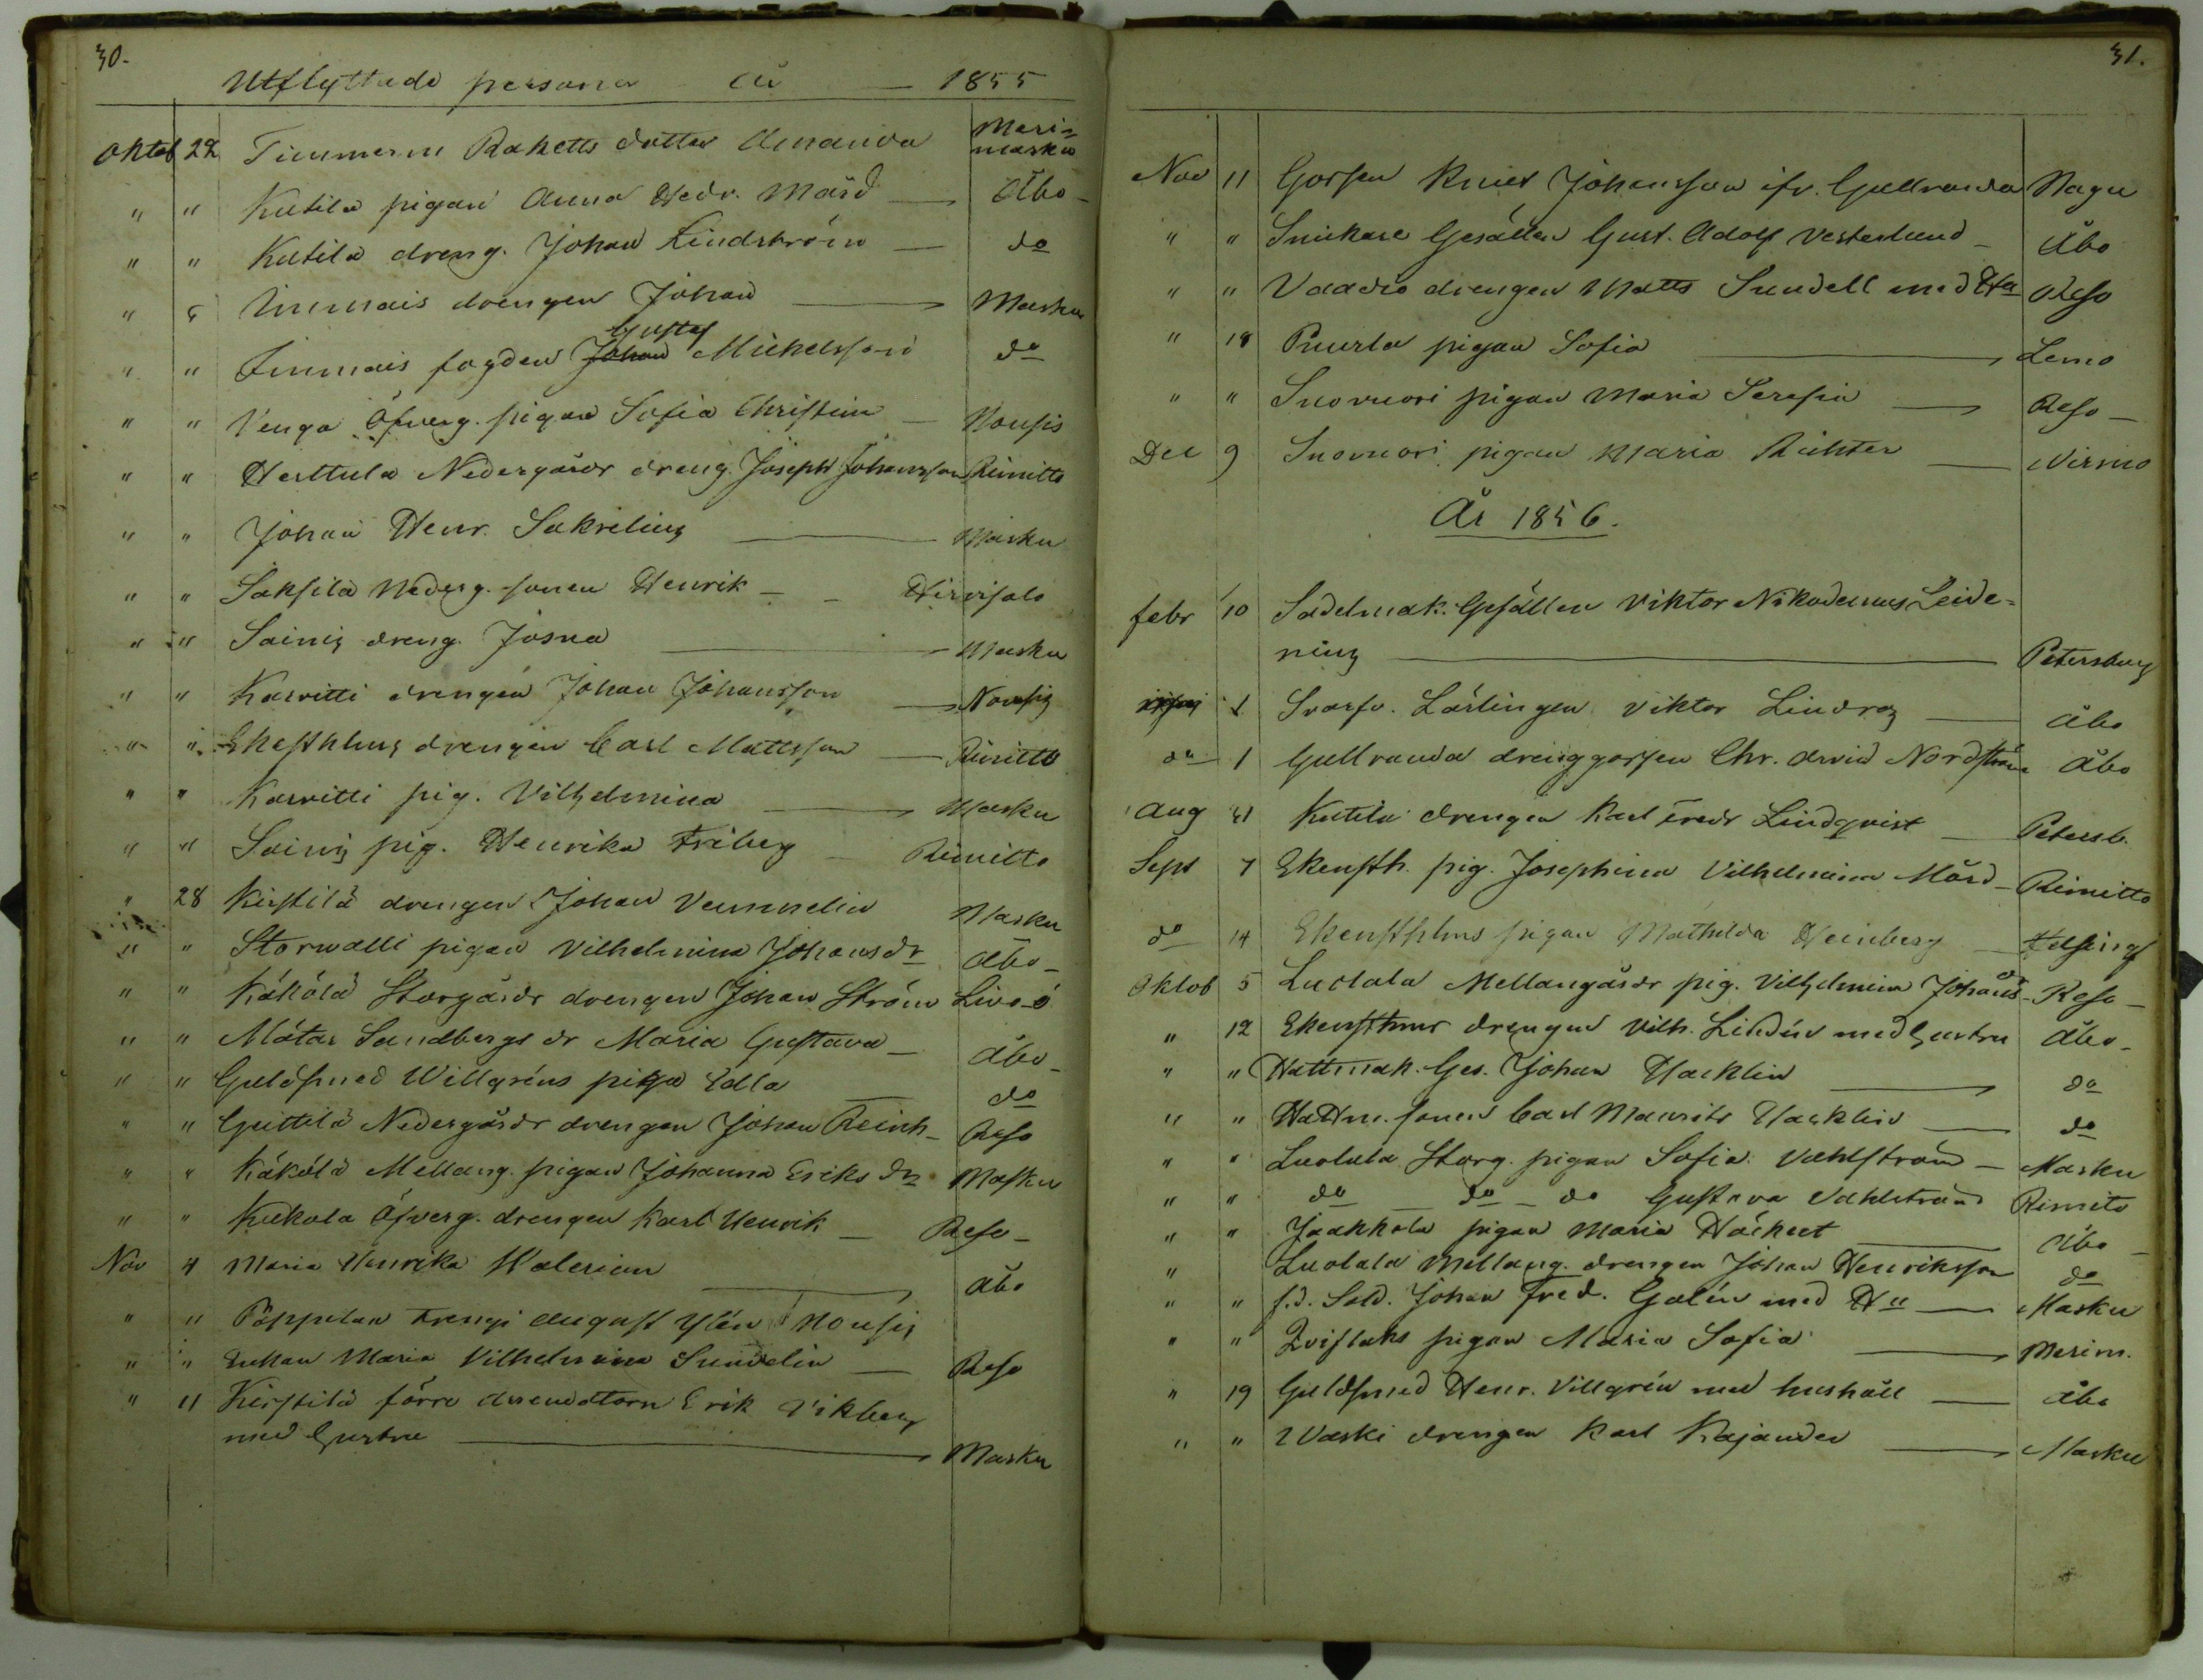 30.
Utflyttade personer år — 1855
Oktob 22 Timmerm Raketts dotter Amanda Meri=
masku
" " Kutila pigan Anna Hedr. Mård — Åbo
" " Kutila dreng. Johan Lindström — do
" " Immais drengen Johan — Masku
Gustaf
" " Immais fogden Johan Michelsson do
" " Venga Öfverg. pigan Sofia Christin — Nousis
" " Herttula Nedergårds dreng. Joseph Johansson Rimitto
" " Johan Henr. Sakrelius — Masku
" " Saksila Nederg. sonen Henrik — Hirvisalo
" " Sainis dreng. Josua — Masku
" " Karvitti drengen Johan Johansson — Nousis
" " Ekestholms drengen Carl Mattsson — Rimitto
" " Karvitti pig. Vilhelmina — Masku
" " Sainis pig. Henrika Friberg — Rimitto
" 28 Kirstilä drengen Johan Vennelin Masku
" " Storwalli pigan Vilhelmina Johansdr Åbo
" " Käkölä Storgårds drengen Johan Ström Livo-ö
" " Mätar Sandbergs dr Maria Gustava — Åbo
" " Guldsmed Willgréns piga Edla — do
" " Guttilä Nedergårds drengen Johan Reinh. Reso
" " Käkölä Mellang. pigan Johanna Eriks dr Masku
" " Kukola Öfverg. drengen Karl Henrik — Reso
Nov 4 Maria Henrika Walerian — Åbo
" " Pöppilän trengi August Ylén Nousis
" " Enkan Maria Vilhelmina Sundelin — Reso
" 11 Kirstilä förre arrendatorn Erik Vikberg
med hustru — Masku
31.
Nov 11 Gossen Knut Johansson ifr. Gullranda Nagu
" " Snickare Gesällen Gust. Adolf Vesterlund — Åbo
" " Vaadio drengen Matts Sundell med Hu Reso
" 18 Puurla pigan Sofia — Lemo
" " Suovuori pigan Maria Serafia — Reso
Dec 9 Suovuori pigan Maria Richter — Virmo
År 1856.
febr 10 Sadelmak. Gesällen Viktor Nikodemus Leide=
nius — Petersburg
1 Svarfv. Lärlingen Viktor Lindros — Åbo
do 1 Gullranda drenggossen Chr. Arvid Nordström Åbo
Aug 31 Kutila drengen Karl Fredr Lindqvist — Petersb.
Sept 7 Ekensth. pig. Josephina Vilhelmina Mård — Rimitto
do 14 Ekenstholms pigan Mathilda Heinberg — Helsingf
Oktob 5 Luolala Mellangårds pig. Vilhelmina Johansdr — Reso
" 12 Ekensthms drengen Vilh. Lindén med hustru Åbo
" " Hattmak. Ges. Johan Hacklin — do
" " Hattm. sonen Carl Maurits Hacklin — do
" " Luolala Storg. pigan Sofia Vahlström — Masku
" " do do — do Gustava Vahlström Rimito
" " Jaakkola pigan Maria Häckert — Åbo
" Luolala Mellang. drengen Johan Henriksson do
" " f.d. Sold. Johan Fred. Galén med Hu — Masku
" " Qvistaks pigan Maria Sofia — Merim.
" 19 Guldsmed Henr. Villgrén med hushåll — Åbo
" " Waski drengen Karl Kajander — Masku